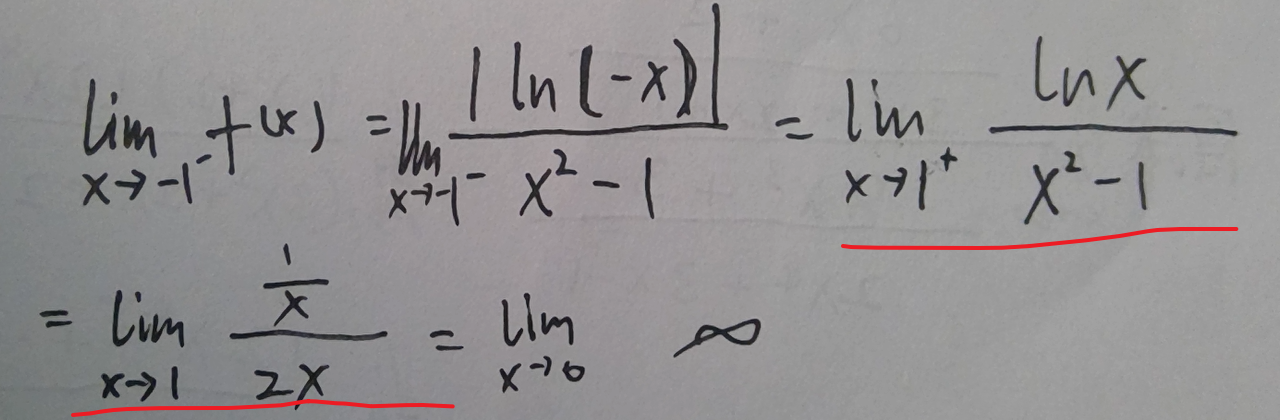 lim x→-1⁻ f(x) = lim x→-1⁻ |ln(-x)| / x²-1 = lim x→1⁺ lnx / x²-1
= lim x→1 (1/x) / 2x = lim x→0 ∞